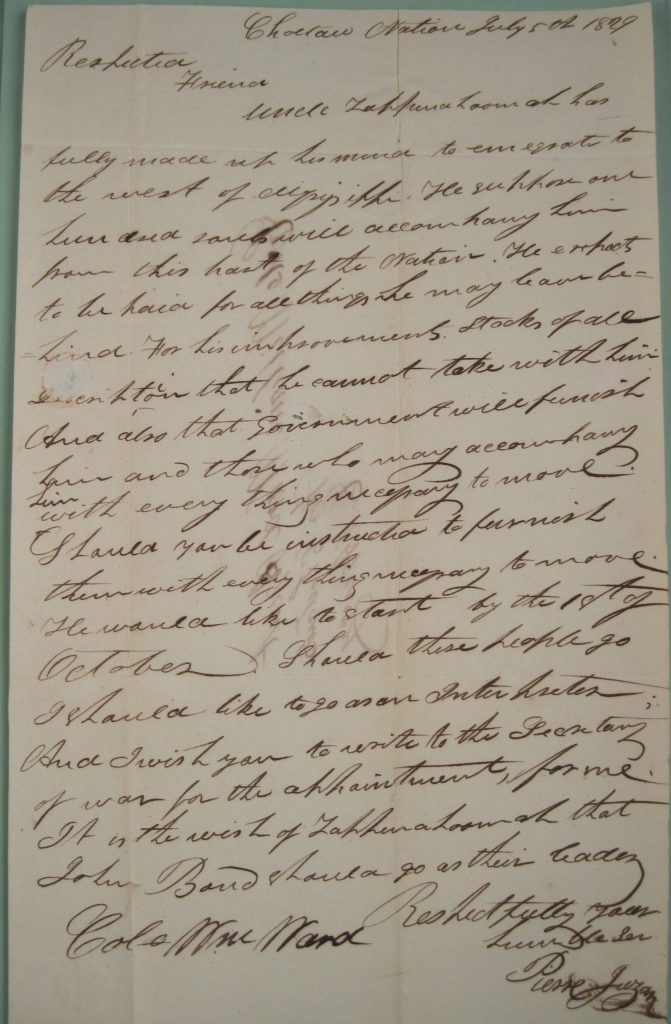 Choctaw Nation July 5th 1829
Respected
Friend
Uncle Tappenahoomah has
fully made up his mind to emegrate to
the west of Mississippi. He suppose one
hundred souls will accompany him
from this part of the Nation. He expects
to be paid for all things he may leave be=
=hind. For his improvements. Stocks of all
discription that he cannot take with him
And also that Government will furnish
him and those who may accompany
him
with every thing necessary to move.
Should you be instructed to furnish
them with every thing necessary to move.
He would like to start by the 1st of
October. Should these people go
I should like to go as an Interpreter;
And I wish you to write to the Secretary
of war for the appointment, for me.
It is the wish of Tappenahoomah that
John Bond should go as their leader
Respectfully your
humble Ser
Pierre Juzan
Colo Wm Ward